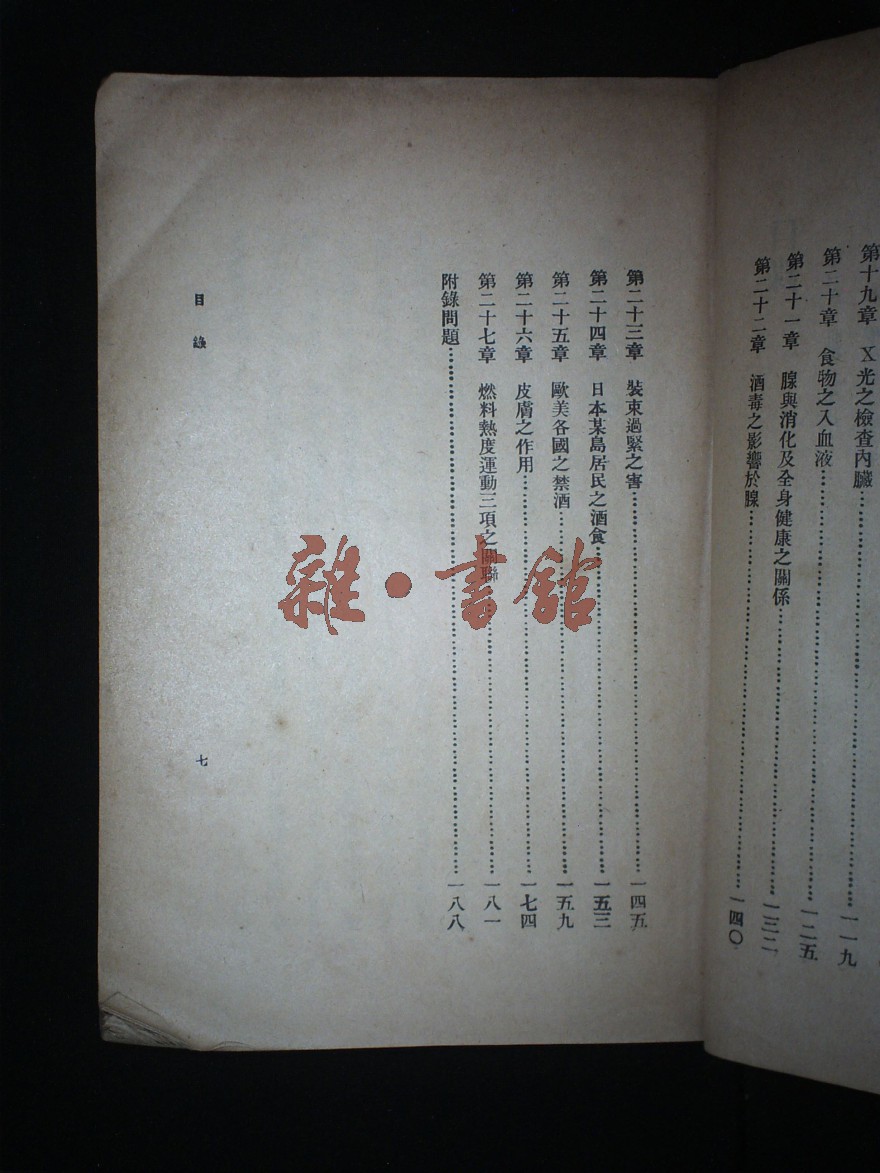 第十九章　X光之檢查內臟……一一九
第二十章　食物之入血液……一二五
第二十一章　腺與消化及全身健康之關係……一三二
第二十二章　酒毒之影響於腺……一四〇
第二十三章　裝束過緊之害……一四五
第二十四章　日本某島居民之酒食……一五三
第二十五章　歐美各國之禁酒……一五九
第二十六章　皮膚之作用……一七四
第二十七章　燃料熱度運動三項之關聯……一八一
附錄問題……一八八
目錄
七
雜·書館